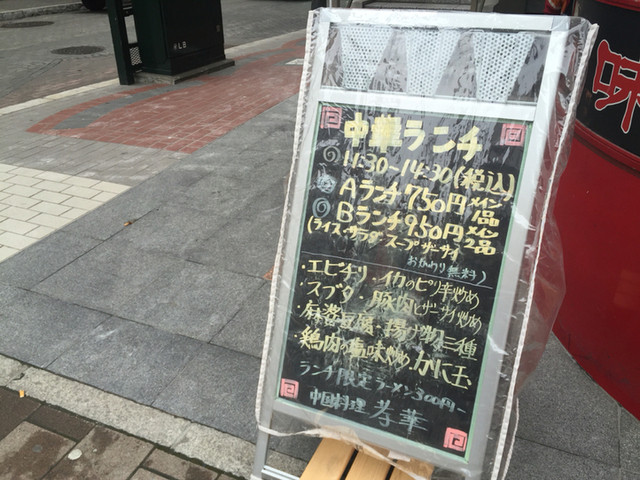 中華ランチ
11:30~14:30(税込)
Aランチ750円 メイン1品
Bランチ950円 メイン2品
(ライス・サラダ・スープ・ザーサイ
おかわり無料)
・エビチリ・イカのピリ辛炒め
・スブタ・豚肉とザーサイ炒め
・麻婆豆腐・揚げ物三種
鶏肉の塩味炒め・かに玉
ランチ限定ラーメン300円-
中国料理 孝華
味